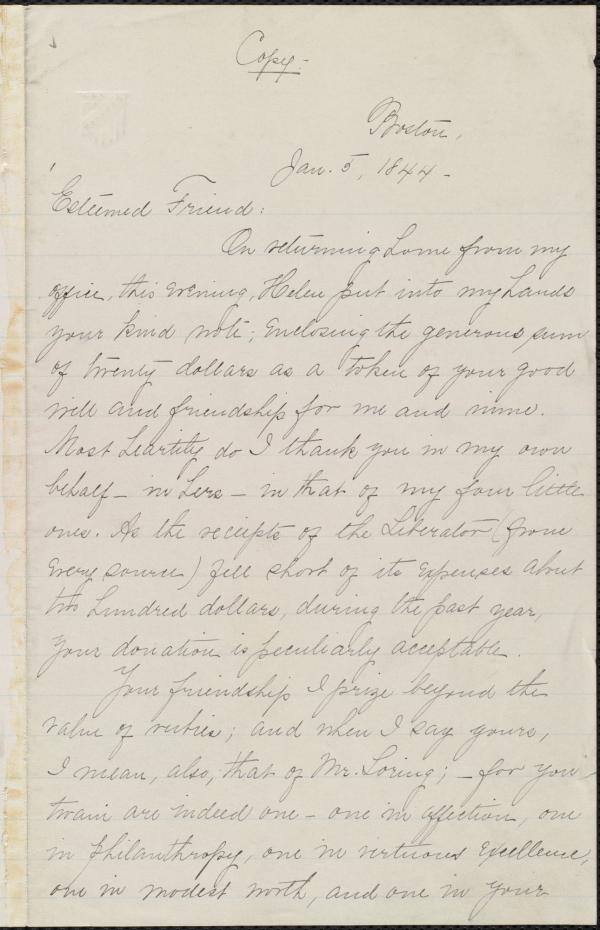 Copy.
Boston,
Jan. 5, 1844.
Esteemed Friend:
On returning home from my
office, this evening, Helen put into my hands
your kind note; enclosing the generous sum
of twenty dollars as a token of your good
will and friendship for me and mine.
Most heartily do I thank you in my own
behalf – in hers – in that of my four little
ones. As the receipts of the Liberator (from
every source) fell short of its expenses about
two hundred dollars, during the past year,
your donation is peculiarly acceptable.
Your friendship I prize beyond the
value of rubies; and when I say yours,
I mean, also, that of Mr. Loring; – for you
twain are indeed one – one in affection, one
in philanthropy, one in virtuous excellence,
one in modest worth, and one in your